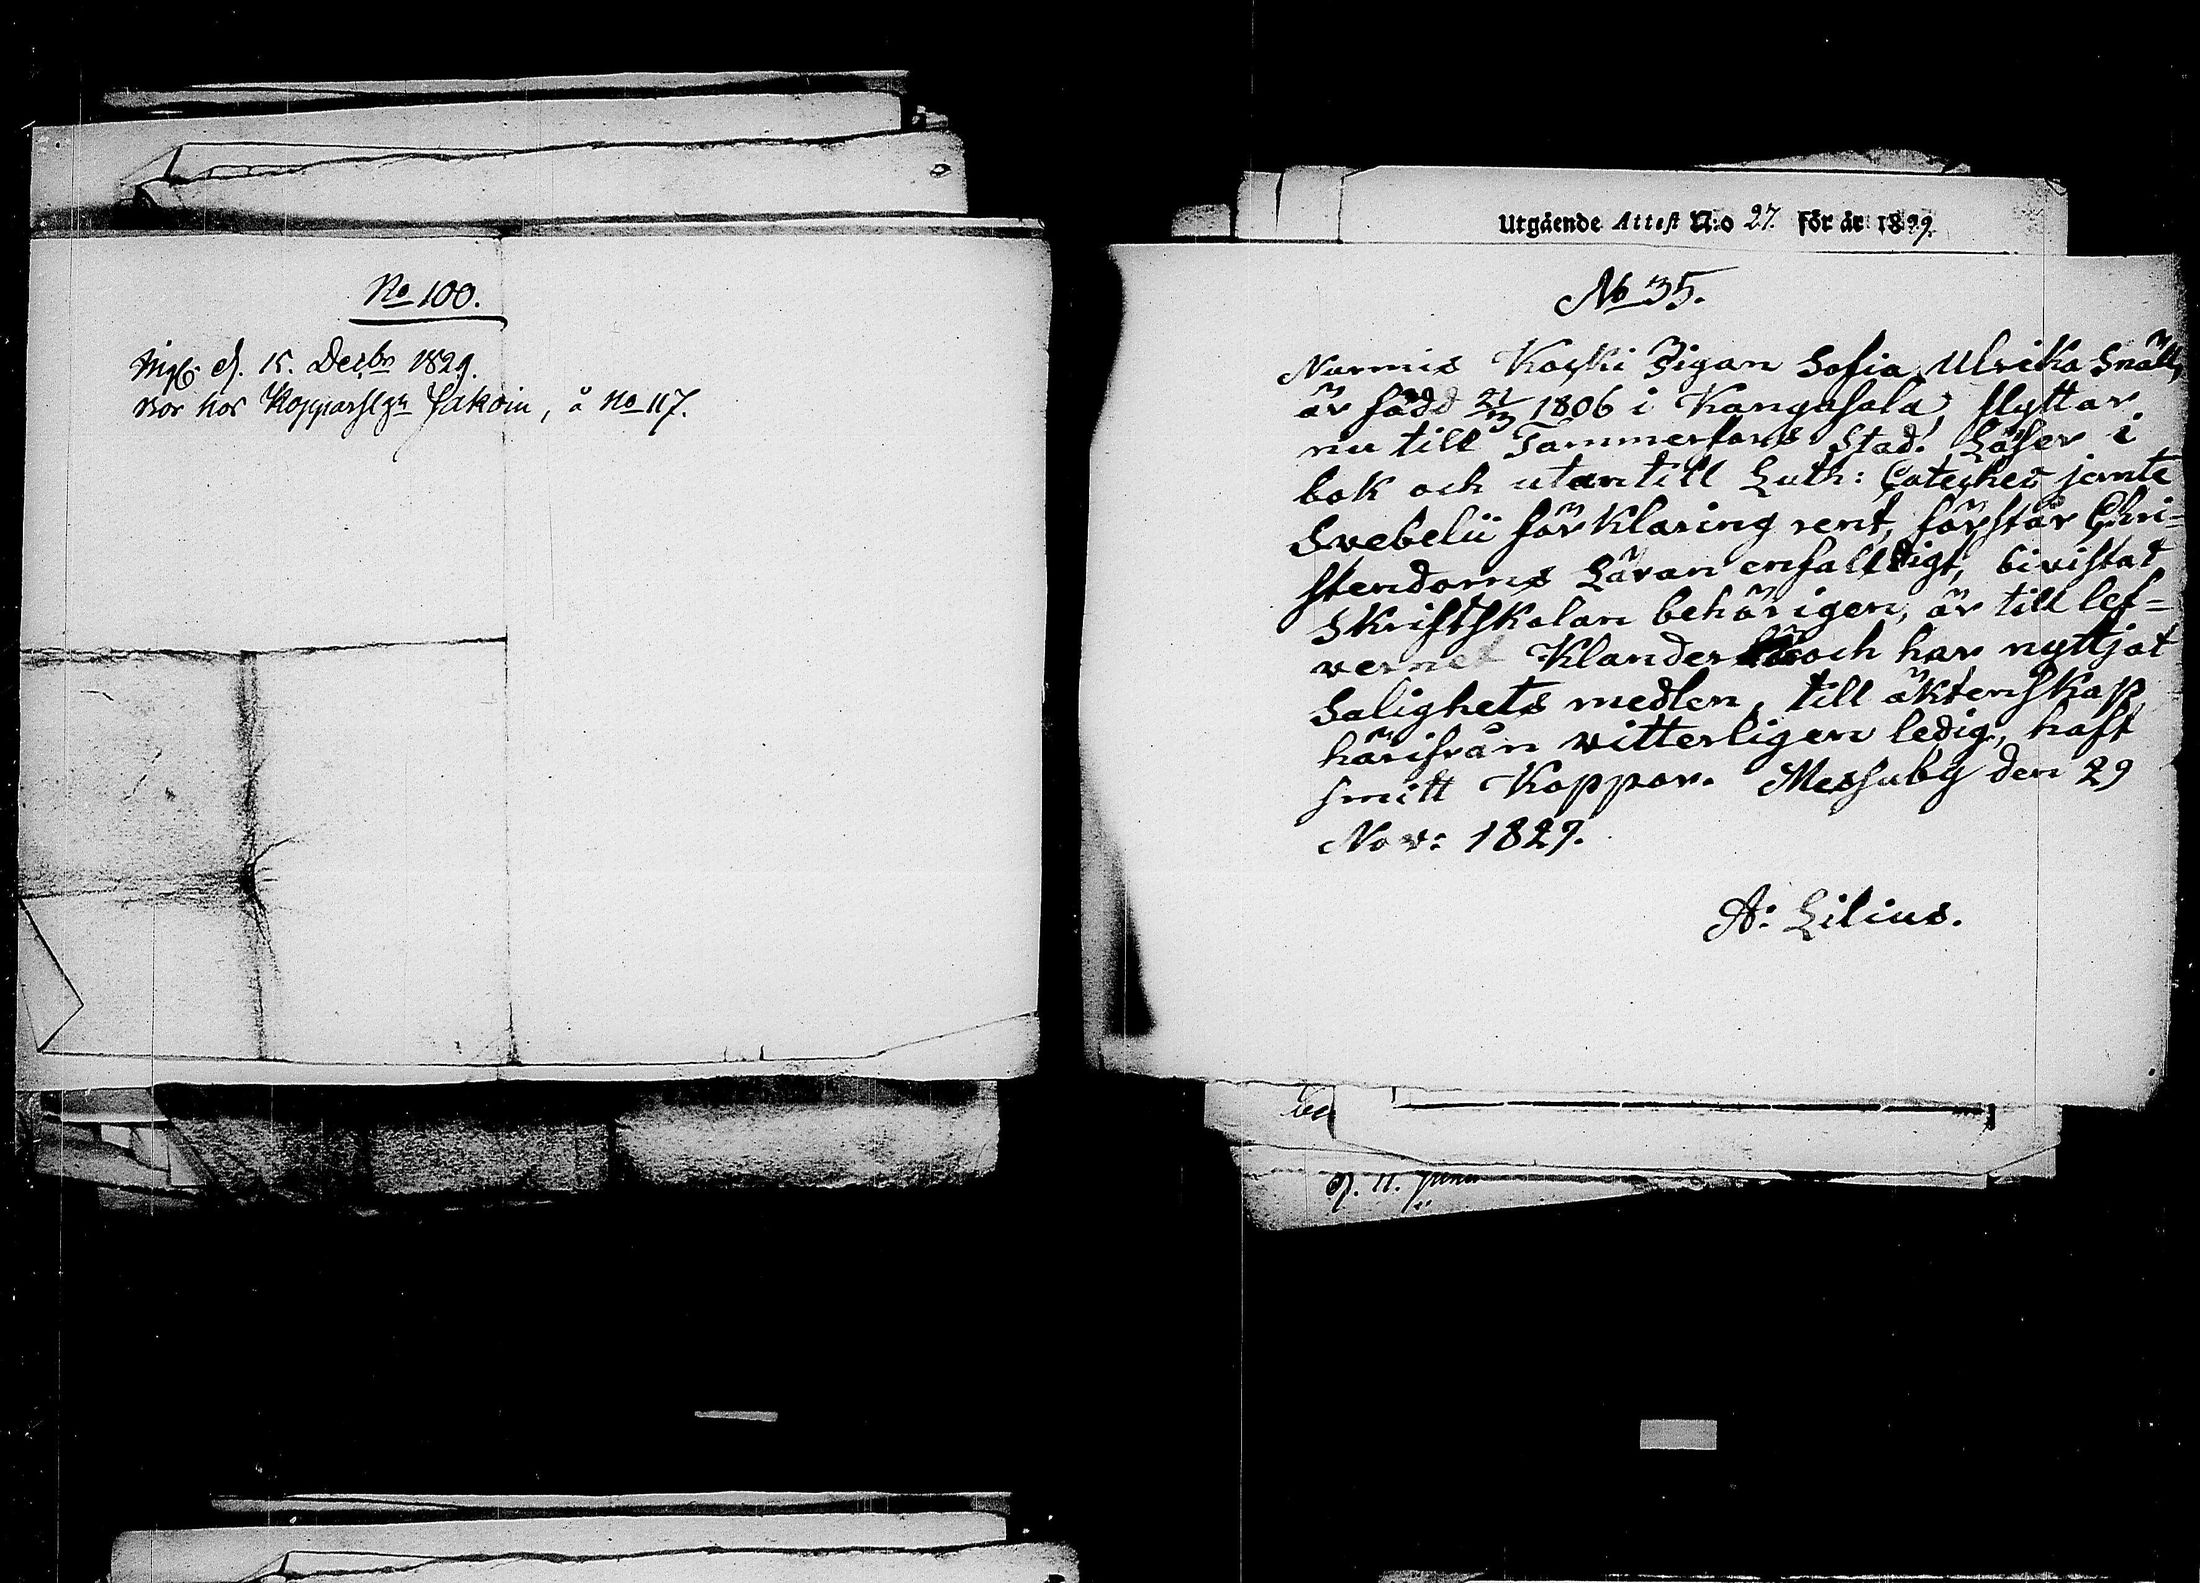 No 100.
Ingf. d. 15. Decbr 1829.
bor hos Kopparslgn Jakoin, å No 117.
Utgående Attest N:o 27. För år 1829.
No 35.
Nurmis Koski Pigan Sofia Ulrika Snäll,
är född 21/3 1806 i Kangasala, flyttar
nu till Tammerfors Stad. Läser i
bok och utantill Luth: Cateches jemte
Svebelii förklaring rent, förstår Chri-
stendoms Läran enfalldigt, bivistat
Skriftskolan behörigen, är till lef-
vernet Klander och har nyttjat
Salighets medlen, till äktenskap
härifrån vitterligen ledig, haft
smitt Koppor. Messuby den 29
Nov: 1829.
A: Lilius.
d. 11. Juni